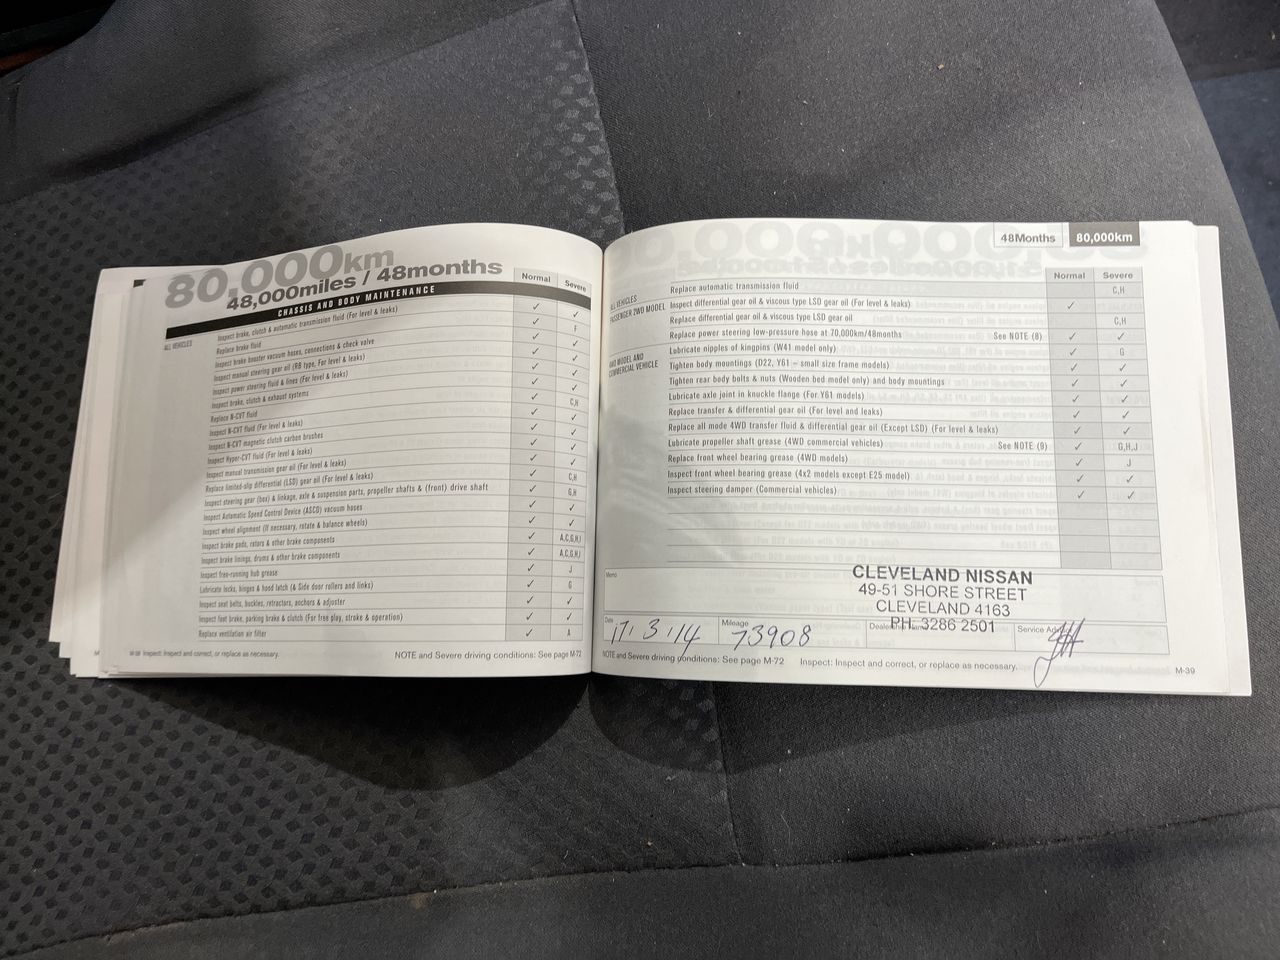 80,000km
48,000miles / 48months
CHASSIS AND BODY MAINTENANCE
Normal
Severe
ALL VEHICLES
Inspect brake, clutch & automatic transmission fluid (For level & leaks)
Replace brake fluid
Inspect brake booster vacuum hoses, connections & check valve
Inspect manual steering gear oil (RB type, For level & leaks)
Inspect power steering fluid & lines (For level & leaks)
Inspect brake, clutch & exhaust systems
Replace N-CVT fluid
Inspect N-CVT fluid (For level & leaks)
Inspect N-CVT magnetic clutch carbon brushes
Inspect Hyper-CVT fluid (For level & leaks)
Inspect manual transmission gear oil (For level & leaks)
Replace limited-slip differential (LSD) gear oil (For level & leaks)
Inspect steering gear (box) & linkage, axle & suspension parts, propeller shafts & (front) drive shaft
Inspect Automatic Speed Control Device (ASCD) vacuum hoses
Inspect wheel alignment (If necessary, rotate & balance wheels)
Inspect brake pads, rotors & other brake components
Inspect brake linings, drums & other brake components
Inspect free-running hub grease
Lubricate locks, hinges & hood latch (& Side door rollers and links)
Inspect seat belts, buckles, retractors, anchors & adjuster
Inspect foot brake, parking brake & clutch (For free play, stroke & operation)
Replace ventilation air filter
✓ ✓
✓ F
✓ ✓
✓ ✓
✓ ✓
✓ ✓
C,H
✓ ✓
✓ ✓
✓ ✓
✓ ✓
✓ C,H
✓ G,H
✓ ✓
✓ ✓
✓ A,C,G,H,I
✓ A,C,G,H,I
✓ J
✓ G
✓ ✓
✓ ✓
✓ A
Inspect: Inspect and correct, or replace as necessary.
NOTE and Severe driving conditions: See page M-72
48Months 80,000km
Normal Severe
ALL VEHICLES
PASSENGER 2WD MODEL
4WD MODEL AND
COMMERCIAL VEHICLE
Replace automatic transmission fluid C,H
Inspect differential gear oil & viscous type LSD gear oil (For level & leaks) ✓
Replace differential gear oil & viscous type LSD gear oil C,H
Replace power steering low-pressure hose at 70,000km/48months See NOTE (8) ✓ ✓
Lubricate nipples of kingpins (W41 model only) ✓ G
Tighten body mountings (D22, Y61 – small size frame models) ✓ ✓
Tighten rear body bolts & nuts (Wooden bed model only) and body mountings ✓ ✓
Lubricate axle joint in knuckle flange (For Y61 models) ✓ ✓
Replace transfer & differential gear oil (For level and leaks) ✓ ✓
Replace all mode 4WD transfer fluid & differential gear oil (Except LSD) (For level & leaks) ✓ ✓
Lubricate propeller shaft grease (4WD commercial vehicles) See NOTE (9) ✓ G,H,J
Replace front wheel bearing grease (4WD models) ✓ J
Inspect front wheel bearing grease (4x2 models except E25 model) ✓ ✓
Inspect steering damper (Commercial vehicles) ✓ ✓
Memo
CLEVELAND NISSAN
49-51 SHORE STREET
CLEVELAND 4163
PH: 3286 2501
Date 17/3/14 Mileage 73908
NOTE and Severe driving conditions: See page M-72 Inspect: Inspect and correct, or replace as necessary.
M-39